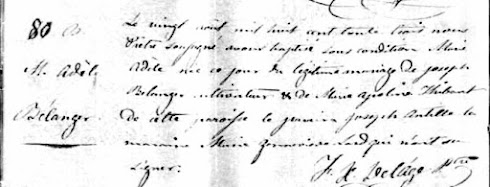 80 B
M. Adèle
Bélanger.
Le vingt août mil huit cent trente trois nous
Prêtre soussigné avons baptisé sous condition Marie
Adèle née ce jour du légitime mariage de Joseph
Bélanger cultivateur & de Marie Apoline Thibaut
de cette paroisse le parrain Joseph
marraine Marie qui n'ont su
signer.
F. X. Delâge Ptre